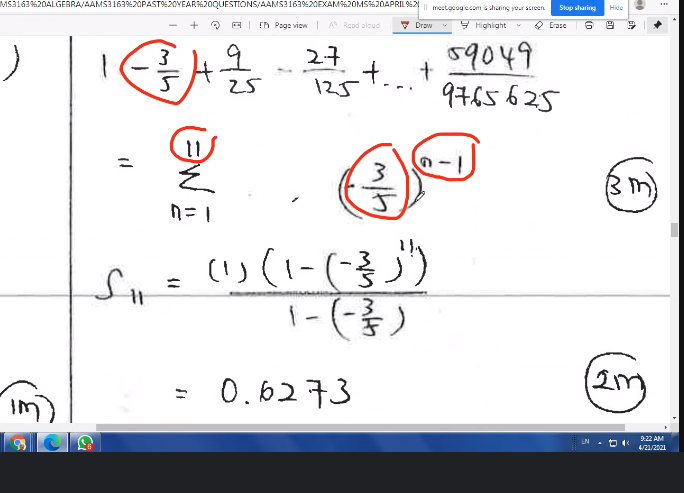 MS3163%20ALGEBRA/AAMS3163%20PAST%20YEAR%20QUESTIONS/AAMS3163%20EXAM%20MS%20APRIL%2
meet.google.com is sharing your screen. Stop sharing Hide
Page view Read aloud Draw Highlight Erase
) 1 - 3/5 + 9/25 - 27/125 + ... + 59049/9765625
= 11 Σ n=1 . (-3/5)^n-1 3m
S11 = (1)(1-(-3/5)^11) / 1-(-3/5)
= 0.6273 2m
1m
EN 9:22 AM
4/21/2021